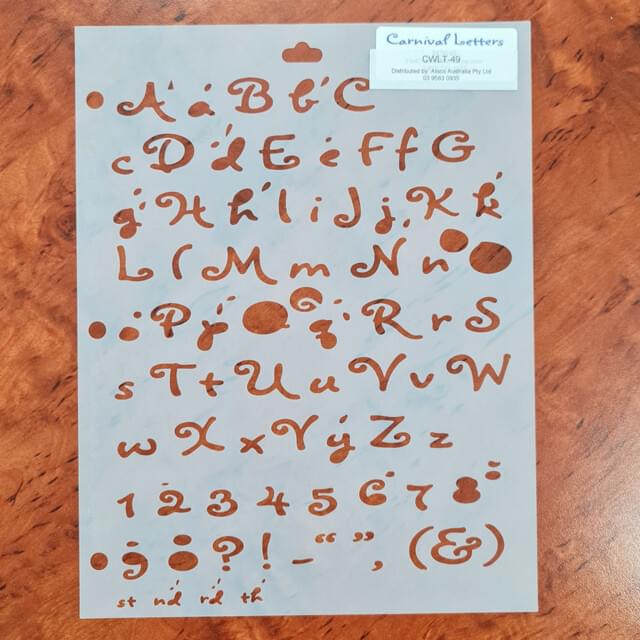 Carnival Letters
CWLT-49
Distributed by: Alsco Australia Pty Ltd
A a B b C
c D d E e F f G
g H h I i J j K k
L l M m N n O
o P p Q q R r S
s T t U u V v W
w X x Y y Z z
1 2 3 4 5 6 7 8
9 0 ? ! - “ ” , ( & )
st nd rd th